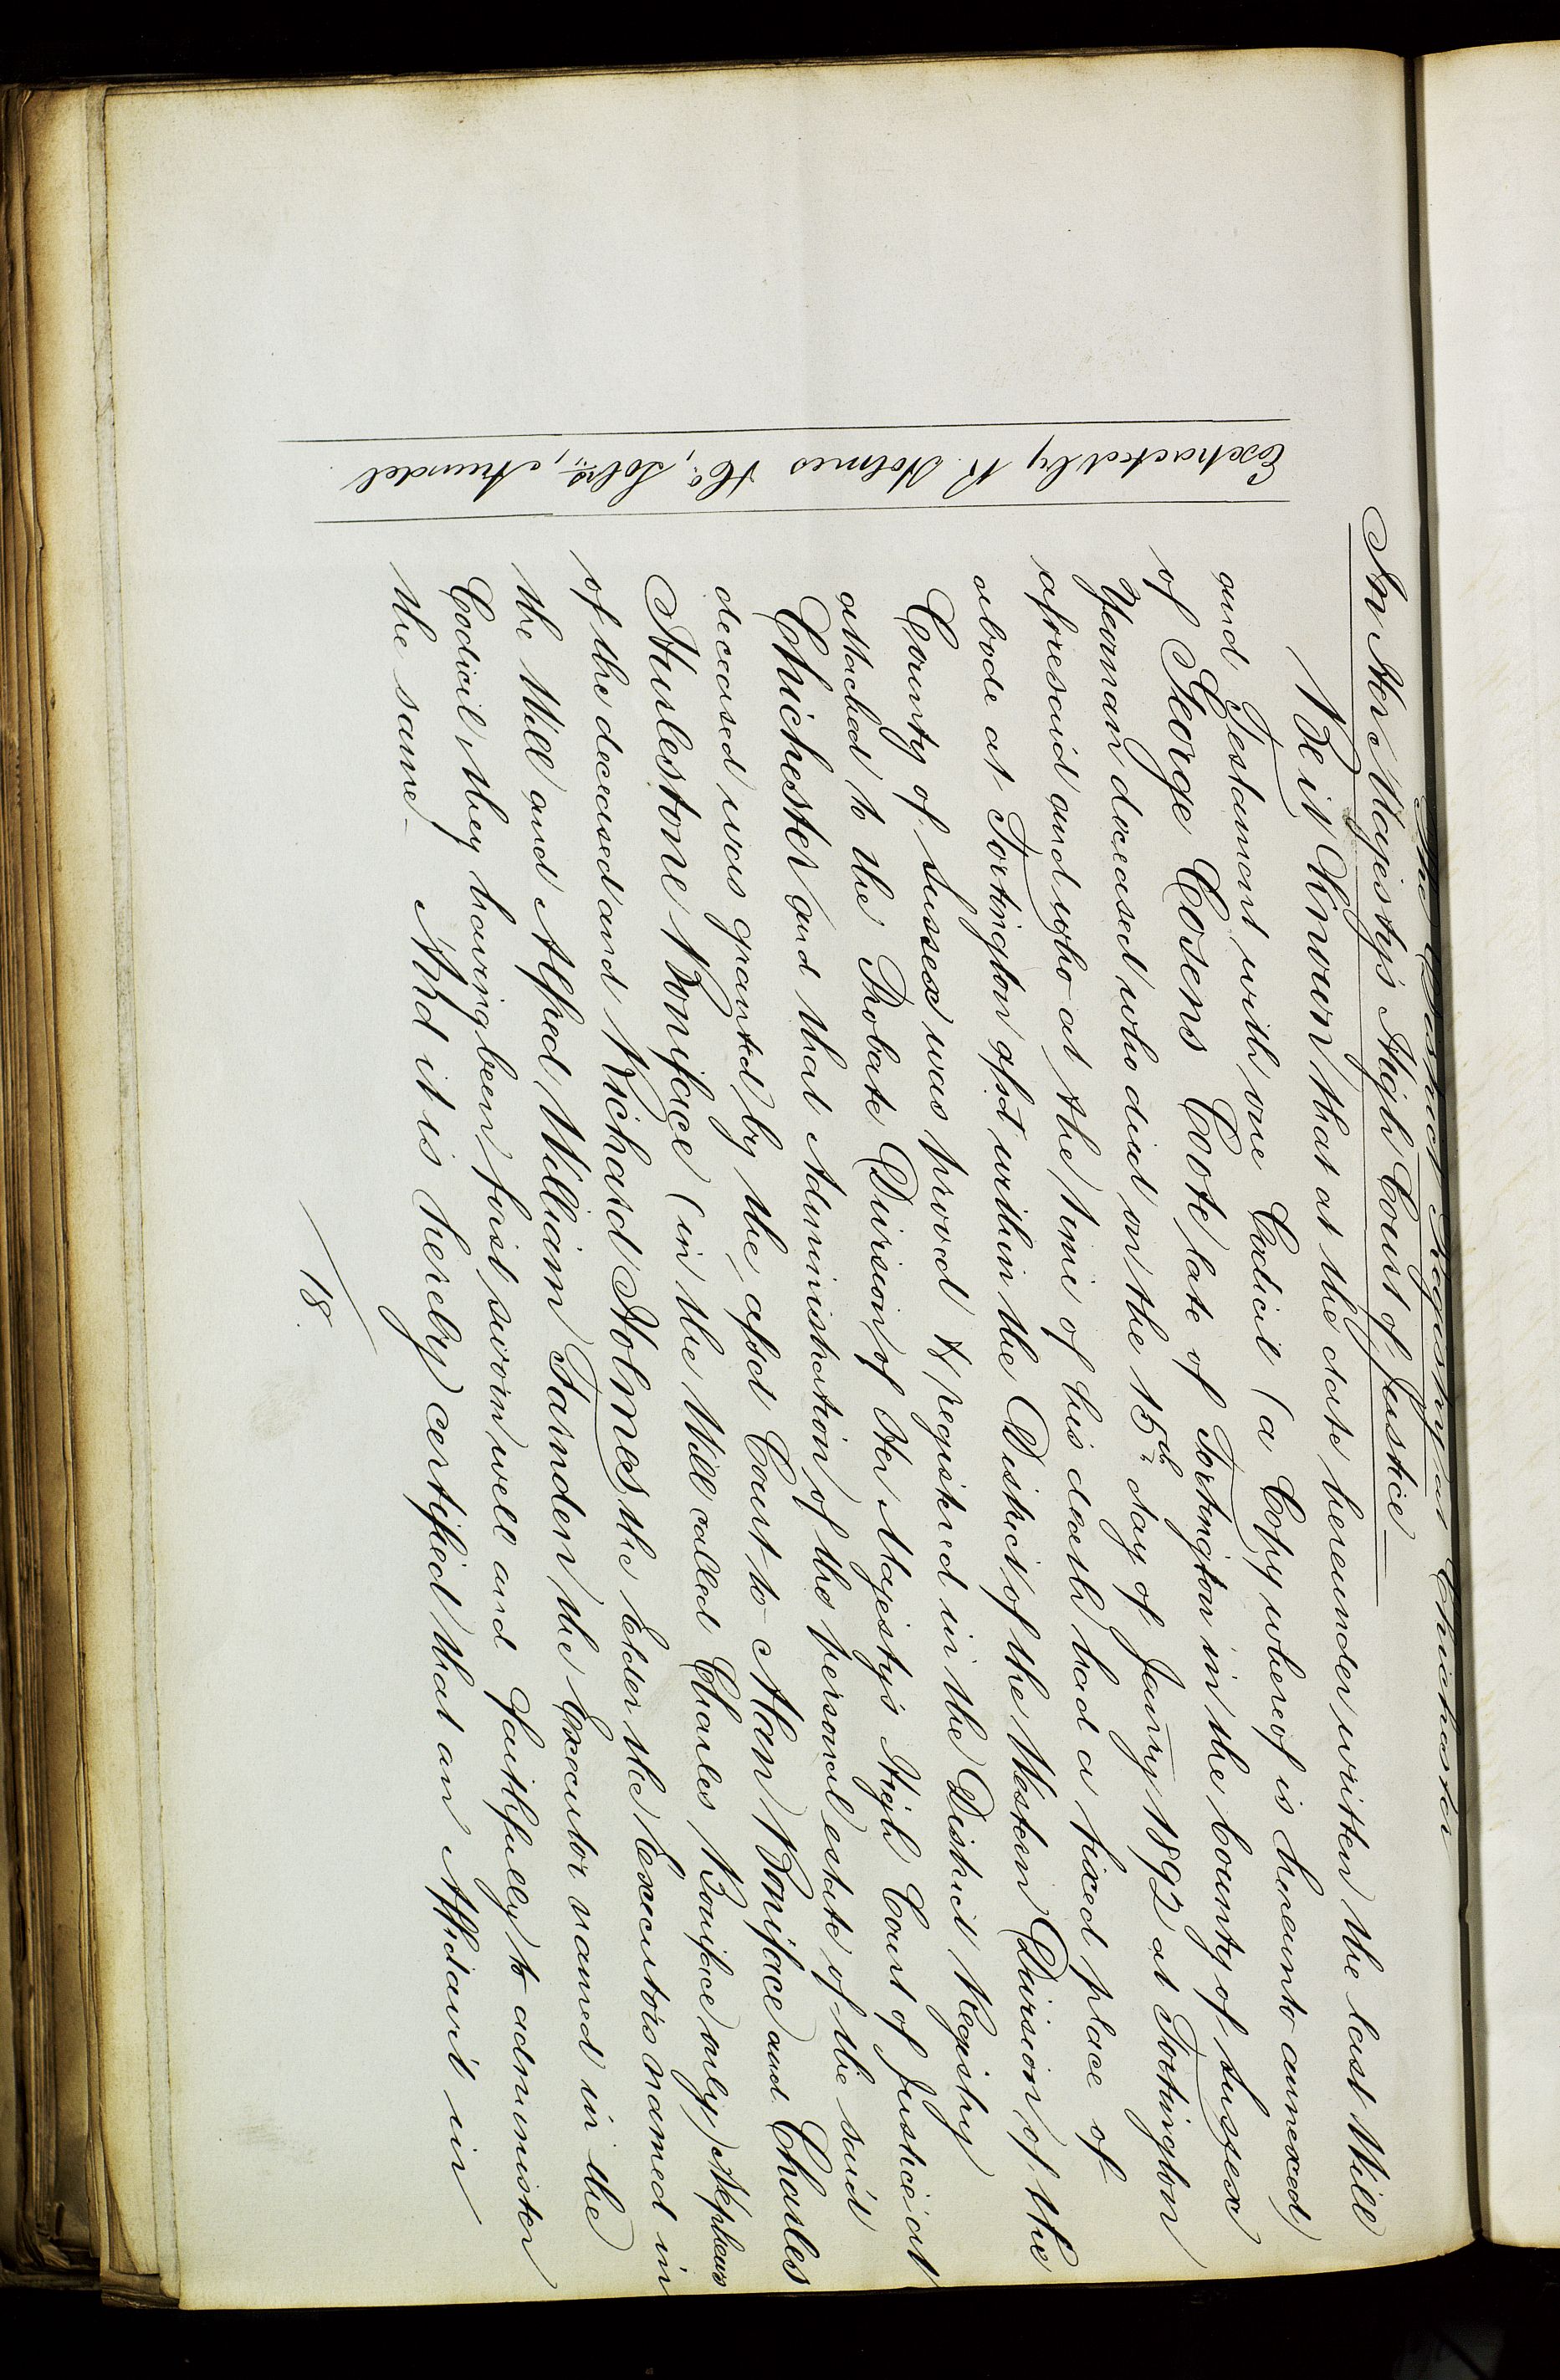 The District Registry at Chichester
In Her Majesty's High Court of Justice
Be it Known that at the date hereunder written the last Will
and Testament with one Codicil (a Copy whereof is hereunto annexed)
of George Cosens Coote late of Tortington in the County of Sussex
Yeoman deceased who died on the 15th day of Janry 1892 at Tortington
aforesaid and who at the time of his death had a fixed place of
abode at Tortington afsd within the District of the Western Division of the
County of Sussex was proved & registered in the District Registry
attached to the Probate Division of Her Majesty's High Court of Justice at
Chichester and that Administration of the personal estate of the said
deceased was granted by the afsd Court to Alan Boniface and Charles
Hurlestone Boniface (in the Will called Charles Boniface only) Nephews
of the deceased and Richard Holmes the Elder the Executors named in
the Will and Alfred William Farnden the Executor named in the
Codicil they having been first sworn well and faithfully to administer
the same. And it is hereby certified that an Affidavit in
18
Extracted by R. Holmes & Co, Solrs, Arundel